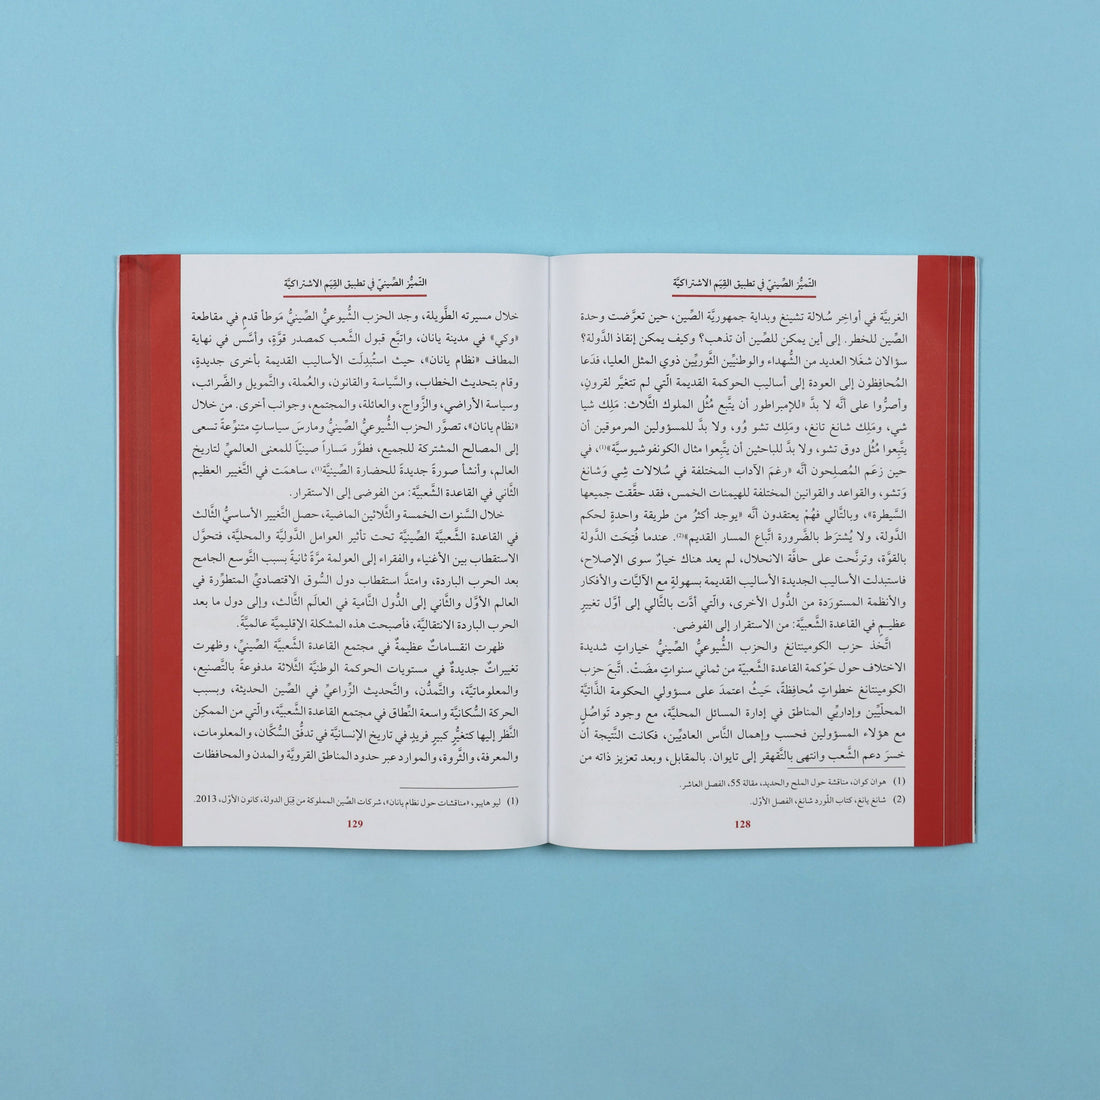 التّميُّز الصِّينيّ في تطبيق القِيَم الاشتراكيَّة
الغربيَّة في أواخِر سُلالة تشينغ وبداية جمهوريَّة الصِّين، حين تعرَّضت وحدة
الصِّين للخطر. إلى أين يمكن للصِّين أن تذهب؟ وكيف يمكن إنقاذ الدَّولة؟
سؤالان شغَلا العديد من الشُّهداء والوطنيِّين الثَّوريِّين ذوي المثل العليا، فدَعا
المُحافِظون إلى العودة إلى أساليب الحوكمة القديمة الّتي لم تتغيَّر لقرونٍ،
وأصرُّوا على أنَّه لا بدَّ «للإمبراطور أن يتَّبع مُثُل الملوك الثَّلاث: مَلِك شيا
شي، ومَلِك شانغ تانغ، ومَلِك تشو وُو، ولا بدَّ للمسؤولين المرموقين أن
يتَّبِعوا مُثُل دوق تشو، ولا بدَّ للباحثين أن يتَّبِعوا مثال الكونفوشيوسيَّة»(1)، في
حين زعَم المُصلِحون أنَّه «رغمَ الآداب المختلفة في سُلالات شِي وَشانغ
وَتشو، والقواعد والقوانين المختلفة للهيمنات الخمس، فقد حقَّقت جميعها
السَّيطرة»، وبالتَّالي فهُمْ يعتقدون أنَّه «يوجد أكثرُ من طريقة واحدةٍ لحكم
الدَّولة، ولا يُشترَط بالضَّرورة اتَّباع المسار القديم»(2). عندما فُتِحَت الدَّولة
بالقوَّة، وترنَّحت على حافَّة الانحلال، لم يعد هناك خيارٌ سوى الإصلاح،
فاستبدلت الأساليب الجديدة الأساليب القديمة بسهولةٍ مع الآليَّات والأفكار
والأنظمة المستورَدة من الدُّول الأخرى، والّتي أدَّت بالتَّالي إلى أوَّل تغييرٍ
عظيمٍ في القاعدة الشَّعبيَّة: من الاستقرار إلى الفوضى.
اتَّخَذ حزب الكومينتانغ والحزب الشُّيوعيُّ الصِّينيُّ خياراتٍ شديدة
الاختلاف حول حَوْكمة القاعدة الشَّعبيّة من ثماني سنواتٍ مضَتْ. اتَّبعَ حزب
الكومينتانغ خطواتٍ مُحافِظةً، حَيثُ اعتمدَ على مسؤولي الحكومة الذَّاتيَّة
المحلّيِّين وإداريِّي المناطق في إدارة المسائل المحليَّة، مع وجود تَواصُلٍ
مع هؤلاء المسؤولين فحسب وإهمال النَّاس العاديِّين، فكانت النَّتيجة أن
خسرَ دعم الشَّعب وانتهى بالتَّقهقر إلى تايوان. بالمقابل، وبعد تعزيز ذاته من
(1) هوان كوان، مناقشة حول الملح والحديد، مقالة 55، الفصل العاشر.
(2) شانغ يانغ، كتاب اللّورد شانغ، الفصل الأوّل.
128
التّميُّز الصِّينيّ في تطبيق القِيَم الاشتراكيَّة
خلال مسيرته الطَّويلة، وجد الحزب الشُّيوعيُّ الصِّينيُّ مَوطأ قدمٍ في مقاطعة
«وكي» في مدينة يانان، واتبَّع قبول الشَّعب كمصدر قوَّةٍ، وأسَّس في نهاية
المطاف «نظام يانان»، حيث استُبدِلَت الأساليب القديمة بأخرى جديدةٍ،
وقام بتحديث الخطاب، والسِّياسة والقانون، والعُملة، والتَّمويل والضَّرائب،
وسياسة الأراضي، والزَّواج، والعائلة، والمجتمع، وجوانب أخرى. من خلال
«نظام يانان»، تصوَّر الحزب الشُّيوعيُّ الصِّينيُّ ومارسَ سياساتٍ متنوِّعةً تسعى
إلى المصالح المشتركة للجميع، فطوَّر مَساراً صينيّاً للمعنى العالميِّ لتاريخ
العالم، وأنشأ صورةً جديدةً للحضارة الصِّينيَّة(1)، ساهمَت في التَّغيير العظيم
الثَّاني في القاعدة الشَّعبيَّة: من الفوضى إلى الاستقرار.
خلال السَّنوات الخمسة والثَّلاثين الماضية، حصل التَّغيير الأساسيُّ الثَّالث
في القاعدة الشَّعبيَّة الصِّينيَّة تحت تأثير العوامل الدَّوليَّة والمحليَّة، فتحوَّل
الاستقطاب بين الأغنياء والفقراء إلى العولمة مرَّةً ثانيةً بسبب التَّوسع الجامح
بعد الحرب الباردة، وامتدَّ استقطاب دول السُّوق الاقتصاديِّ المتطوِّرة في
العالم الأوَّل والثَّاني إلى الدُّول النَّامية في العالَم الثَّالث، وإلى دول ما بعد
الحرب الباردة الانتقاليَّة، فأصبحت هذه المشكلة الإقليميَّة عالميَّةً.
ظهرت انقساماتٌ عظيمةٌ في مجتمع القاعدة الشَّعبيَّة الصِّينيِّ، وظهرت
تغييراتٌ جديدةٌ في مستويات الحوكمة الوطنيَّة الثَّلاثة مدفوعةً بالتَّصنيع،
والمعلوماتيَّة، والتَّمدُّن، والتَّحديث الزّراعيِّ في الصِّين الحديثة، وبسبب
الحركة السُّكانيَّة واسعة النِّطاق في مجتمع القاعدة الشَّعبيَّة، والّتي من الممكِن
النَّظر إليها كتغيُّرٍ كبيرٍ فريدٍ في تاريخ الإنسانيَّة في تدفُّق السُّكَّان، والمعلومات،
والمعرفة، والثَّروة، والموارد عبر حدود المناطق القرويَّة والمدن والمحافظات
(1) ليو هايبو، «مناقشات حول نظام يانان»، شركات الصِّين المملوكة من قِبَل الدولة، كانون الأوّل، 2013.
129